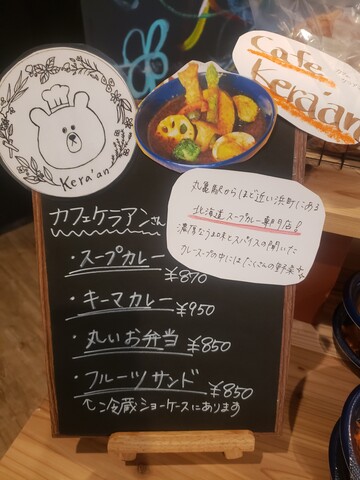 Kera'an
Cafe
Kera'an
丸亀駅からほど近い浜町にある
北海道スープカレー専門店!
濃厚なうま味とスパイスの聞いた
カレースープの中にはたくさんの野菜
カフェケラアンさん
・スープカレー
¥870
・キーマカレー ¥950
・丸いお弁当 ¥850
・フルーツサンド ¥850
冷蔵ショーケースにあります